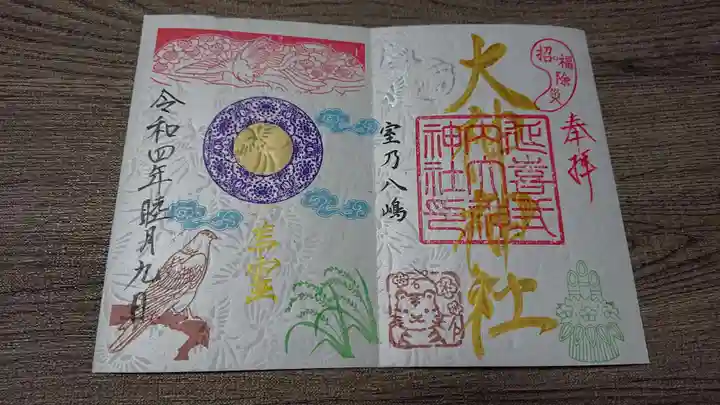 招福除災
奉拝
大神神社
延喜式
内大神
神社印
室乃八嶋
令和四年睦月九日